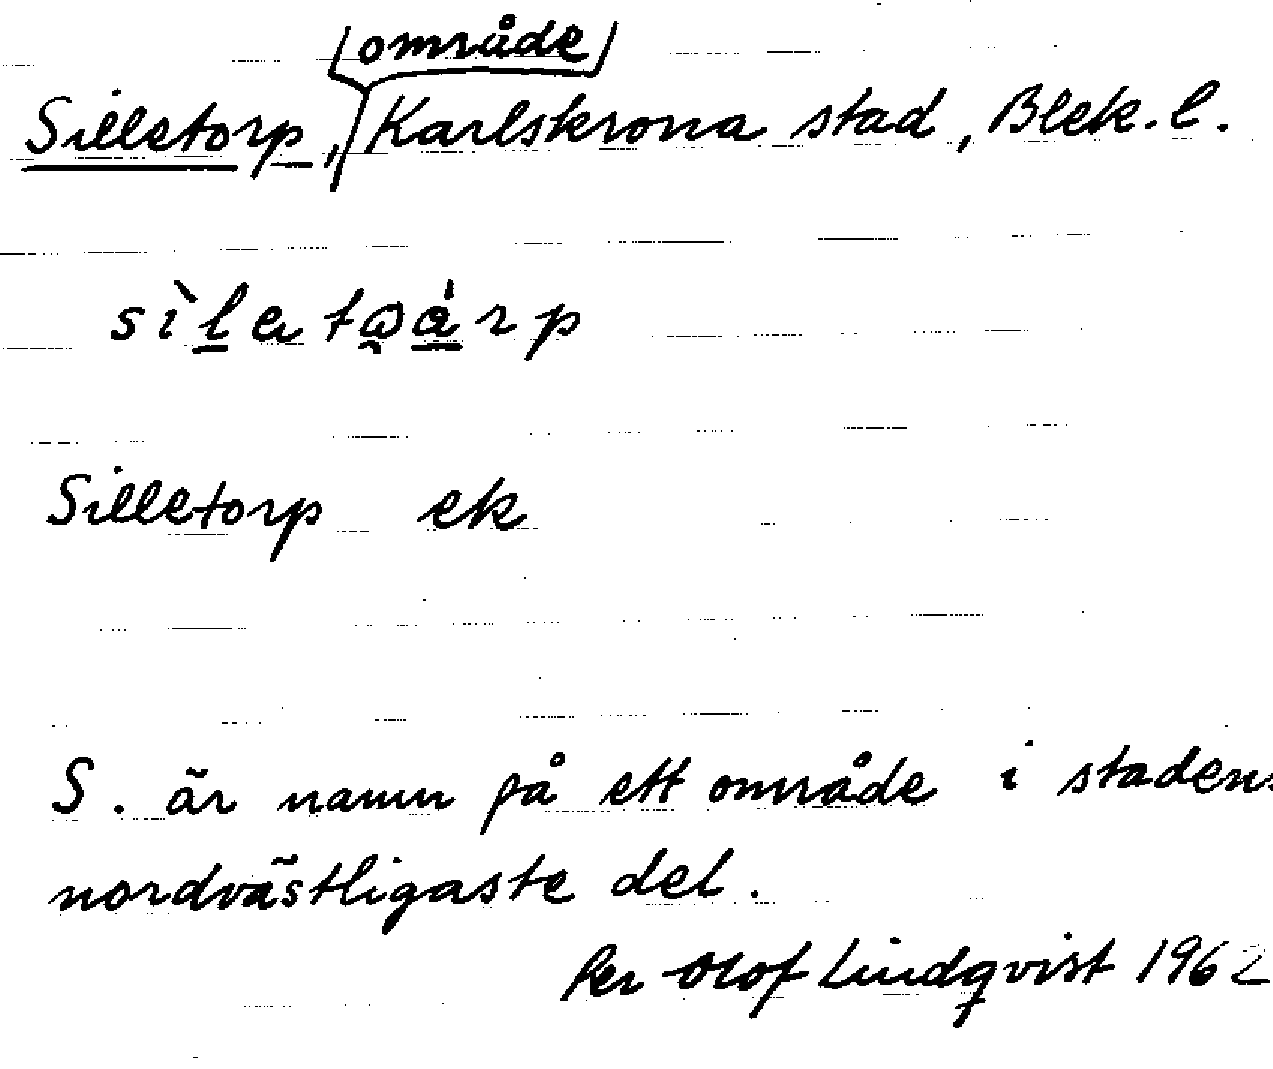 område
Silletorp, Karlskrona stad, Blek. l.
Silletorp ek
S. är namn på ett område i stadens
nordvästligaste del.
Per Olof Lindqvist 1962